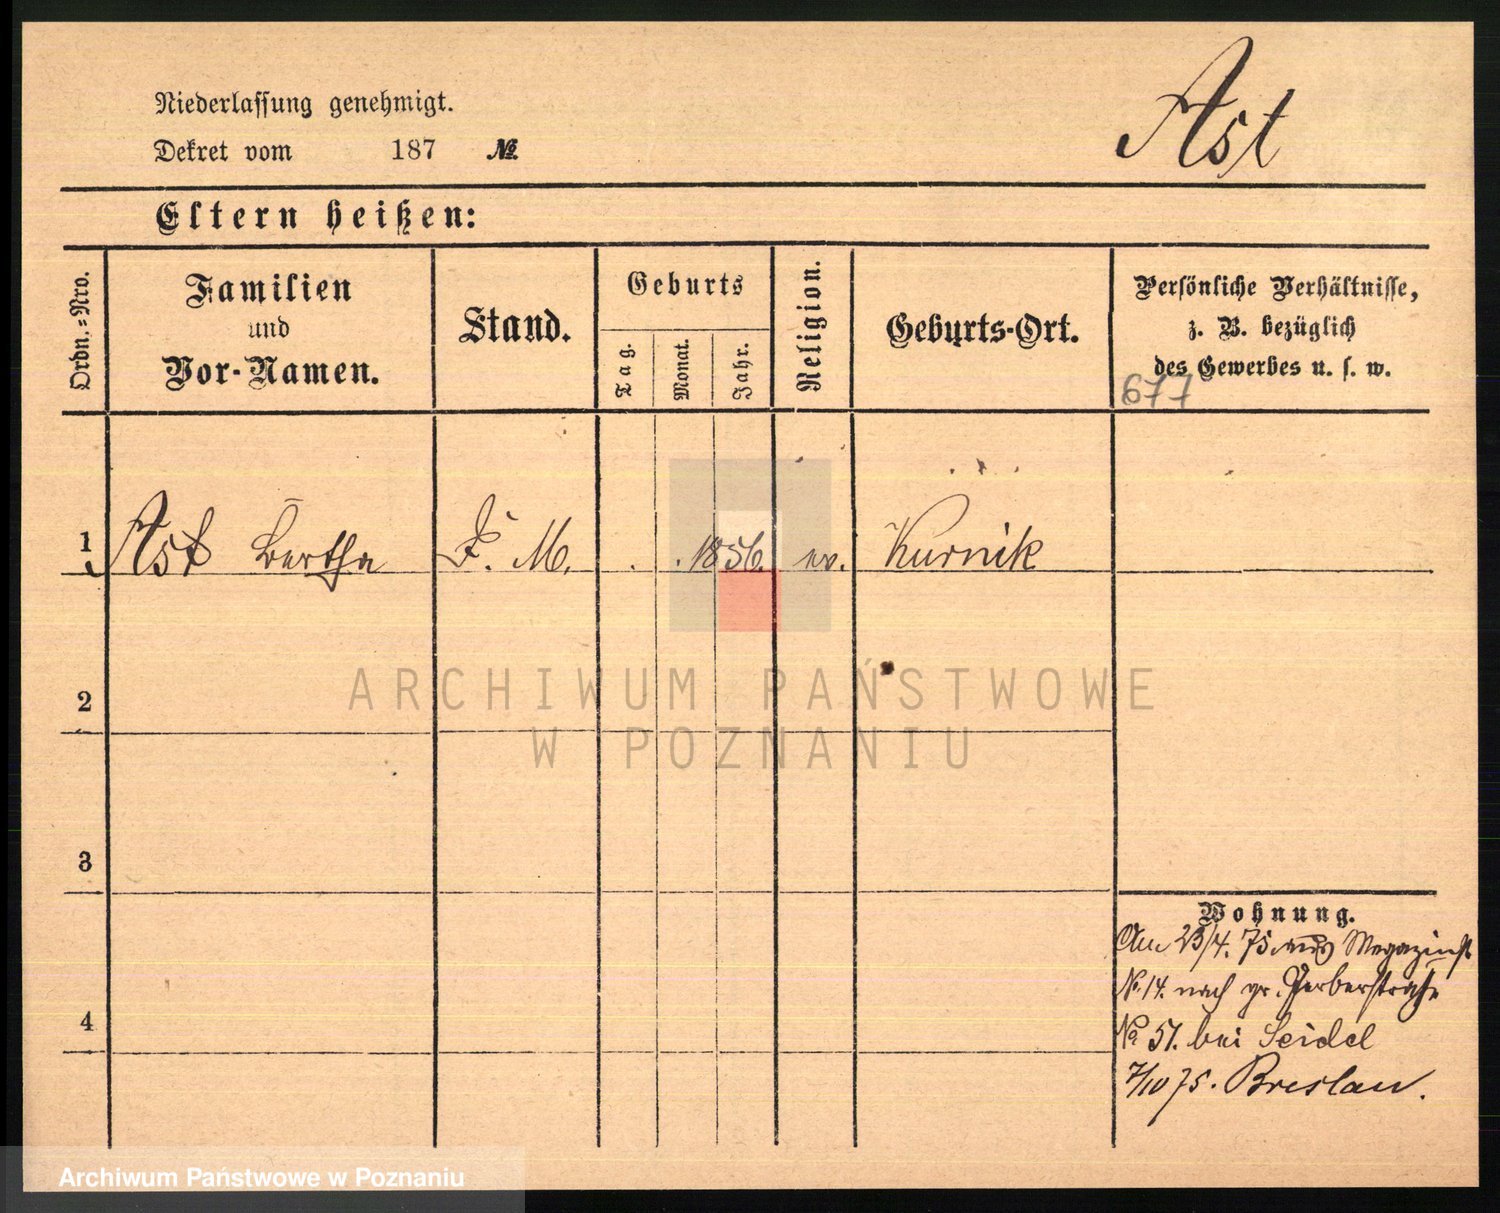 Ast
Niederlassung genehmigt.
Dekret vom 187 №
Eltern heißen:
Ordn.=Nro.
Familien
und
Vor-Namen.
Stand.
Geburts
Tag.
Monat.
Jahr.
Religion.
Geburts-Ort.
Persönliche Verhältnisse,
z. B. bezüglich
des Gewerbes u. s. w.
677
1 Ast Bertha D. M. . . 1856. ev. Kurnik
ARCHIWUM PAŃSTWOWE
W POZNANIU
2
3
4
Wohnung.
Am 23/4. 75 aus Magazinst
No. 14. nach gr. Gerberstraße
No 51. bei Seidel
7/10 75. Breslau.
Archiwum Państwowe w Poznaniu